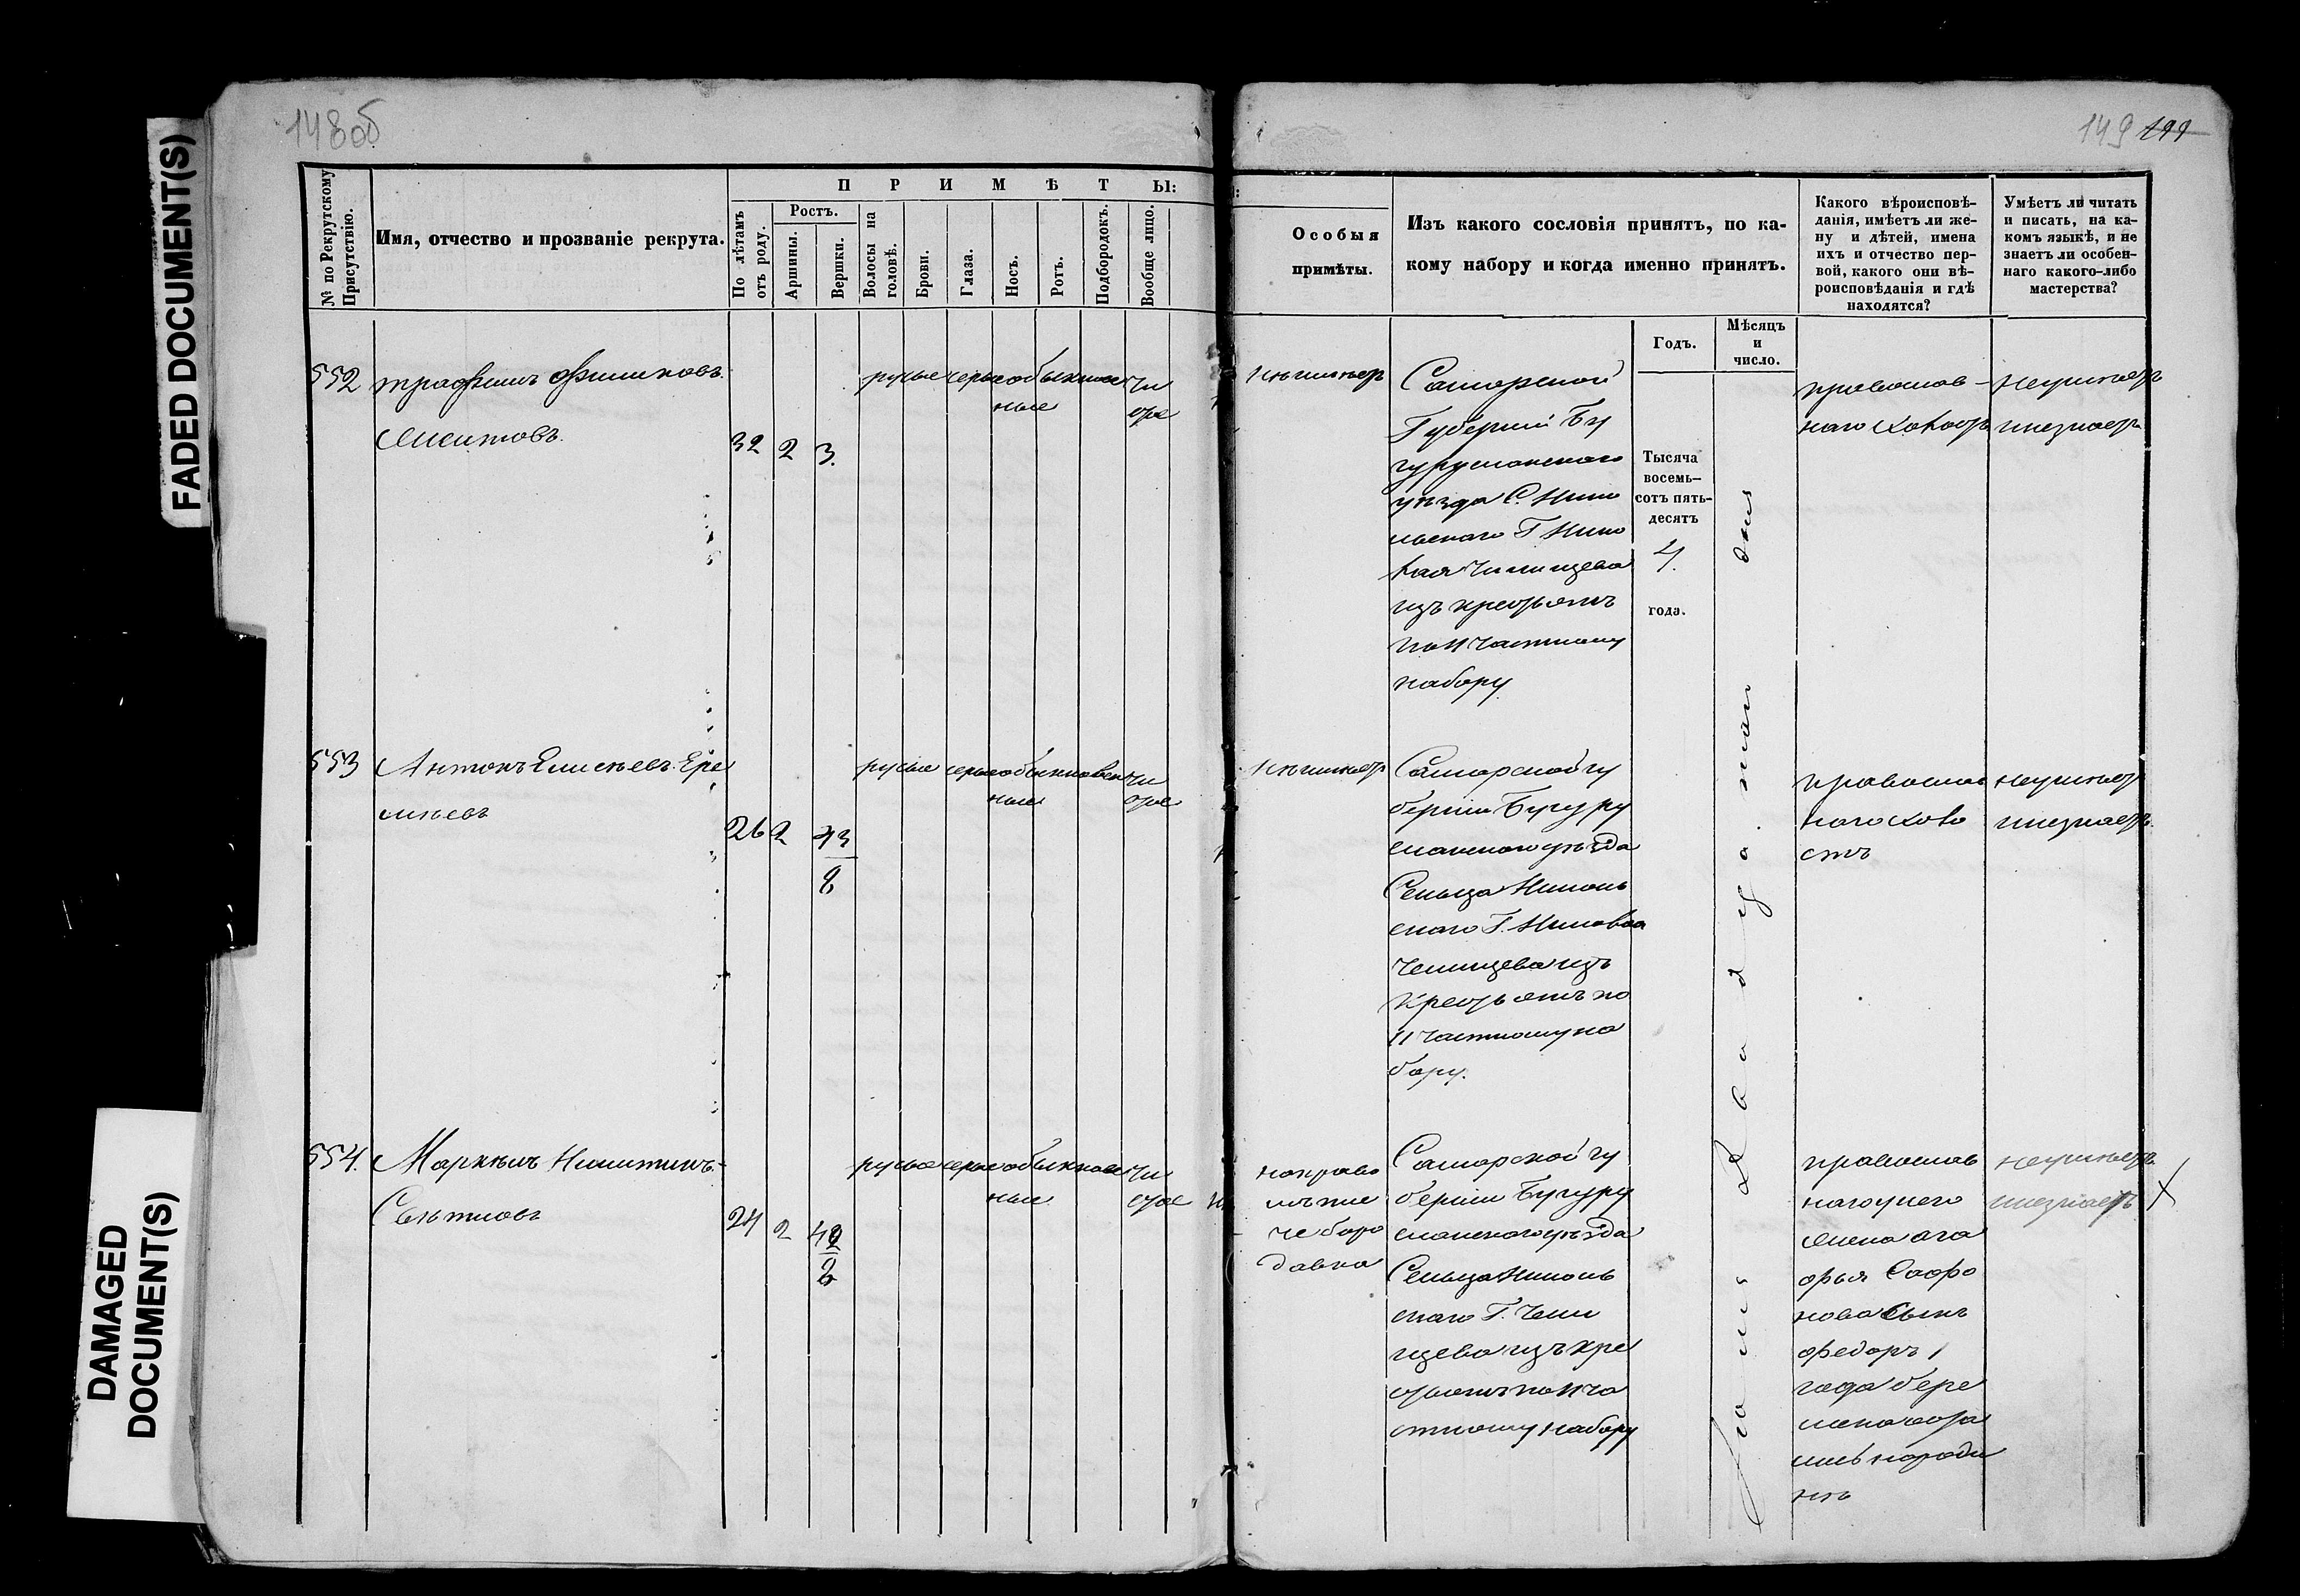 FADED DOCUMENT(S)
DAMAGED
DOCUMENT(S)
148об
149 199
№ по Рекрутскому
Присутствію.
Имя, отчество и прозваніе рекрута.
П Р И М Ѣ Т Ы:
По лѣтамъ
отъ роду.
Ростъ.
Аршины.
Вершки.
Волосы на
головѣ.
Брови.
Глаза.
Носъ.
Ротъ.
Подбородокъ.
Вообще лицо.
Особыя
примѣты.
Изъ какого сословія принятъ, по ка-
кому набору и когда именно принятъ.
Годъ.
Мѣсяцъ
и
число.
Какого вѣроисповѣ-
данія, имѣетъ ли же-
ну и дѣтей, имена
ихъ и отчество пер-
вой, какого они вѣ-
роисповѣданія и гдѣ
находятся?
Умѣетъ ли читать
и писать, на ка-
комъ языкѣ, и не
знаетъ ли особен-
наго какого-либо
мастерства?
552
Трофимъ
32 2 3.
русые серые обыкновен
ные
чи
стое
неимѣетъ
Самарской
Губерніи Бу
гурусланского
уѣзда С. Нико
льскаго Г Нико
лая Чилищева
изъ крестьянъ
по 11 частному
набору
Тысяча
восемь-
сотъ пять-
десятъ
4.
года.
Іюня Двадцатаго дня
православ-
наго холостъ
неумѣетъ
и незнаетъ
553
Антонъ Елисѣевъ Ере
мѣевъ
26 2 43
8
русые серые обыкновен
ные
чи
стое
неимѣетъ
Самарской гу
берніи Бугуру
сланского уѣзда
Сельца Николь
скаго Г. Николая
Челищева изъ
Крестьянъ по
11 частному на
бору.
православ
наго холо
стъ
неумѣетъ
и незнаетъ.
554.
Никитинъ
24 2
русые серые обыкновен
ные
чи
стое
на право
мъ пле
че боро
давка
Самарской гу
берніи Бугуру
сланского уѣзда
Сельца Николь
скаго Г. Чели
щева изъ кре
стьянъ по 11 ча
стному набору
православ
наго у него
жена
Сафро
нова Сынъ
Федоръ 1
года бере
на роди
нѣ
неумѣетъ
и незнаетъ